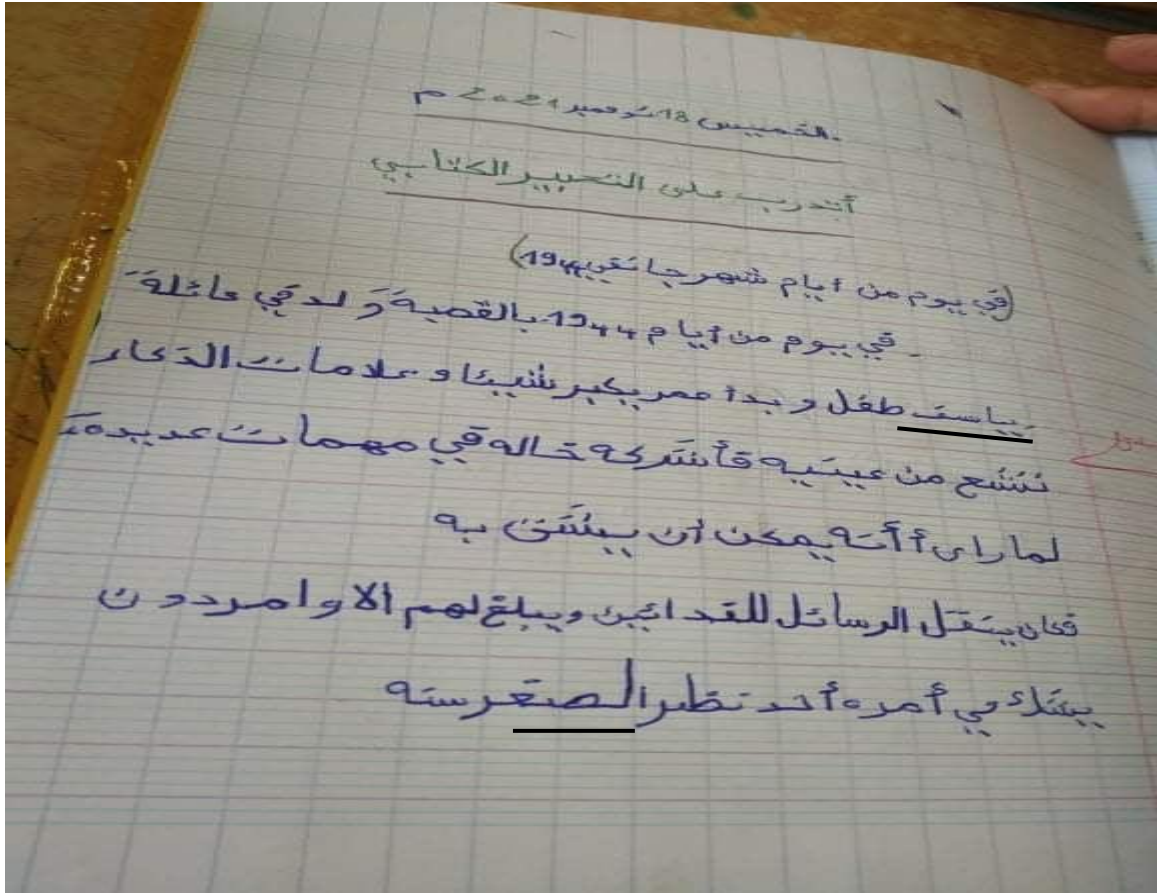 الخميس 18 نوفمبر 2021 م
أتدرب على التعبير الكتابي
(في يوم من أيام شهر جانفي 1944)
في يوم من أيام 1944 بالقصبة ولد في عائلة
ياسف طفل و بدأ عمر يكبر شيئا و علامات الذكاء
تشع من عينيه فأشركه خاله في مهمات عديدة
لما رأى أأنه يمكن أن يثق به
فكان ينقل الرسائل للفدائيين ويبلغ لهم الأوامر دون
يشك في أمره أحد نظرا لصغر سنه